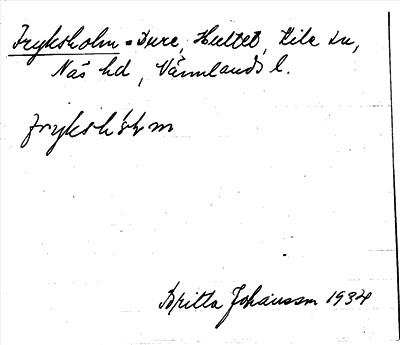 Fryksholm = Dure, Hultet, Kila sn,
Näs hd, Värmlands l.
frykshólm
Britta Johansson 1934